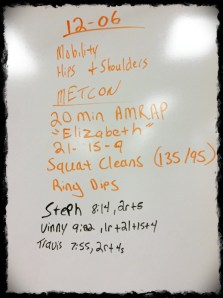 12-06
Mobility
Hips + Shoulders
METCON
20 min AMRAP
"Elizabeth"
21-15-9
Squat Cleans (135/95)
Ring Dips
Steph 8:14, 2r+5
Vinny 9:02, 1r+21+15+4
Travis 7:55, 2r+43